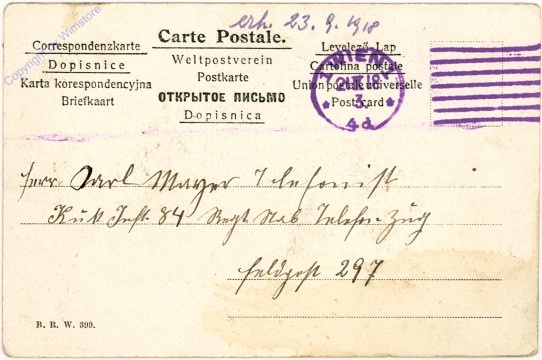 erh. 23. 9. 1918
Carte Postale.
Correspondenzkarte
Dopisnice
Karta korespondencyjna
Briefkaart
Weltpostverein
Postkarte
ОТКРЫТОЕ ПИСЬМО
Dopisnica
Levelező-Lap
Cartolina postale
Union postale universelle
Post card
1 WIEN 1
* 3 *
4d
Copyright by Wimstore
Herr Carl Mayer Telefonist
K.u.k. Inft. 84 Regt. Stab Telefon-Zug
Feldpost 297
B. R. W. 399.